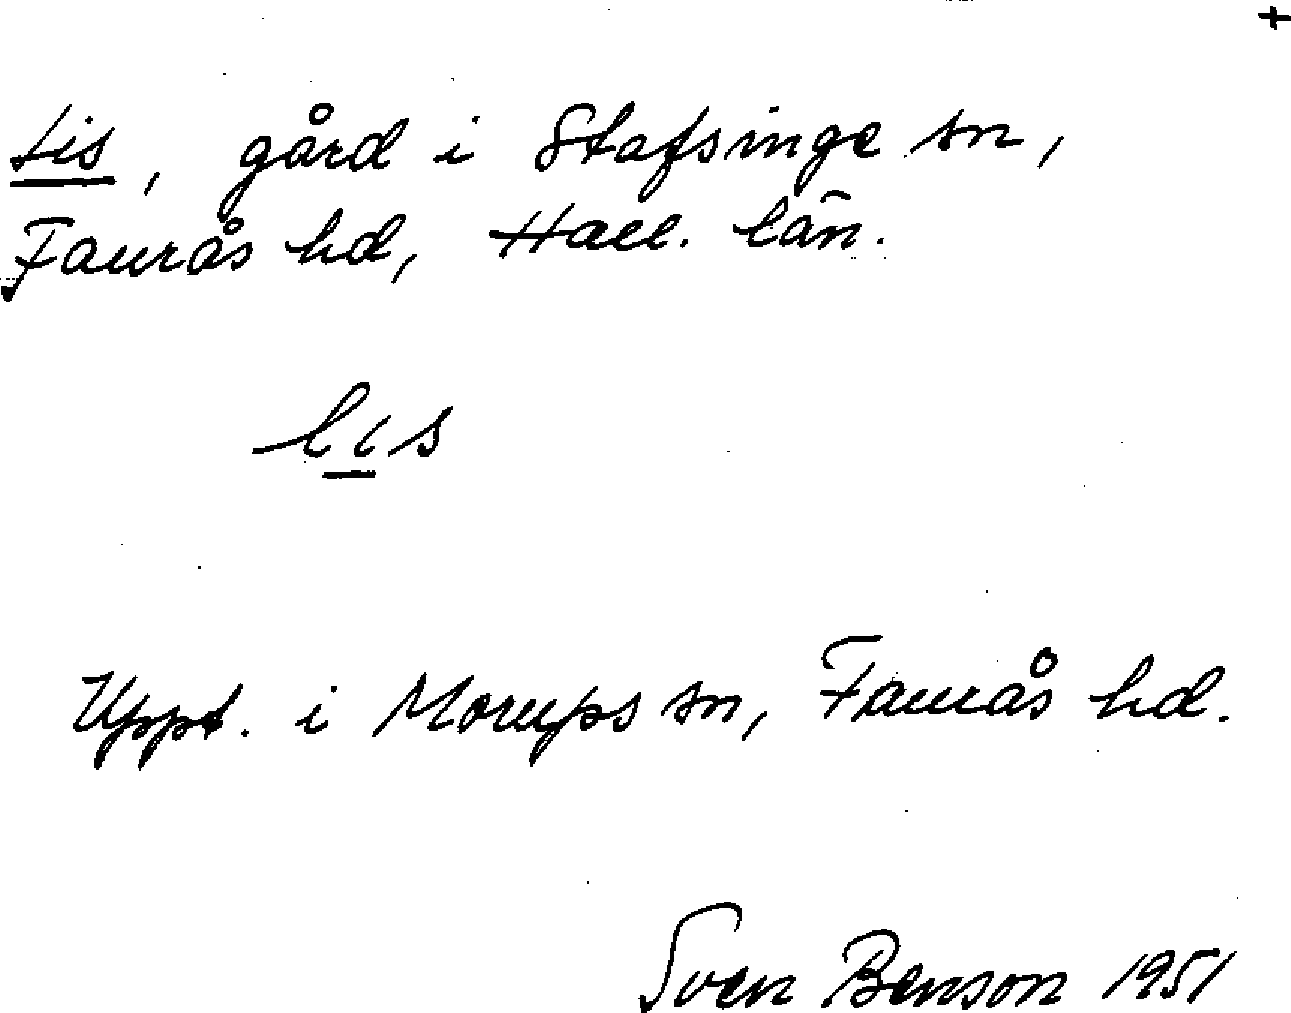 +
Lis, gård i Stafsinge sn,
Faurås hd, Hall. län.
lis
Uppt. i Morups sn, Faurås hd.
Sven Benson 1951